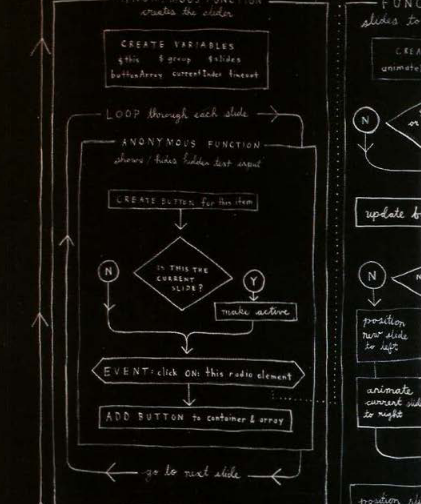 ANONYMOUS FUNCTION
creates the slider
CREATE VARIABLES
$this $group $slides
buttonArray currentIndex timeout
LOOP through each slide
ANONYMOUS FUNCTION
shows / hides hidden text input
CREATE BUTTON for this item
IS THIS THE
CURRENT
SLIDE?
N
Y
make active
EVENT: click ON: this radio element
ADD BUTTON to container & array
go to next slide
FUNC
slides to
CREA
animate
N
or
update b
N
N
position
new slide
to left
animate
current slid
to right
position